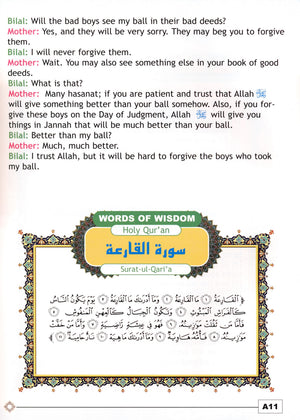 Bilal: Will the bad boys see my ball in their bad deeds?
Mother: Yes, and they will be very sorry. They may beg you to forgive
them.
Bilal: I will never forgive them.
Mother: Wait. You may also see something else in your book of good
deeds.
Bilal: What is that?
Mother: Many hasanat; if you are patient and trust that Allah ﷻ
will give something better than your ball somehow. Also, if you for-
give these boys on the Day of Judgment, Allah ﷻ will give you
things in Jannah that will be much better than your ball.
Bilal: Better than my ball?
Mother: Much, much better.
Bilal: I trust Allah, but it will be hard to forgive the boys who took
my ball.
WORDS OF WISDOM
Holy Qur'an
سورة القارعة
Surat-ul-Qari'a
ٱلْقَارِعَةُ ١ مَا ٱلْقَارِعَةُ ٢ وَمَآ أَدْرَىٰكَ مَا ٱلْقَارِعَةُ ٣ يَوْمَ يَكُونُ ٱلنَّاسُ
كَٱلْفَرَاشِ ٱلْمَبْثُوثِ ٤ وَتَكُونُ ٱلْجِبَالُ كَٱلْعِهْنِ ٱلْمَنفُوشِ ٥
فَأَمَّا مَن ثَقُلَتْ مَوَٰزِينُهُۥ ٦ فَهُوَ فِى عِيشَةٍ رَّاضِيَةٍ ٧ وَأَمَّا مَنْ خَفَّتْ
مَوَٰزِينُهُۥ ٨ فَأُمُّهُۥ هَاوِيَةٌ ٩ وَمَآ أَدْرَىٰكَ مَا هِيَهْ ١٠ نَارٌ حَامِيَةٌۢ ١١
A11